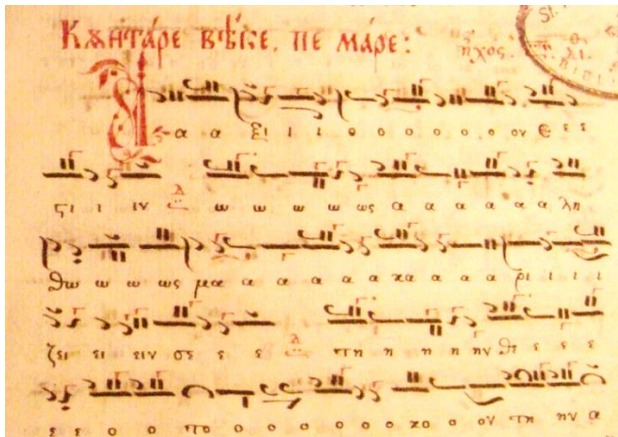 Кѫнта́ре вѣ́ке. пе ма́ре:
ἦχος.
Α α α ξι ι ι ο ο ο ο ο ο ον ε ε ε
στι ι ιν ω ω ω ω ως α α α α α α λη
θω ω ω ως μα α α α α α κα α α α ρι ι ι ι
ζει ει ειν σε ε ε τη η η η ην θε ε ε ε
ε ε ο ο το ο ο ο ο ο κο ο ο ον τη ην α